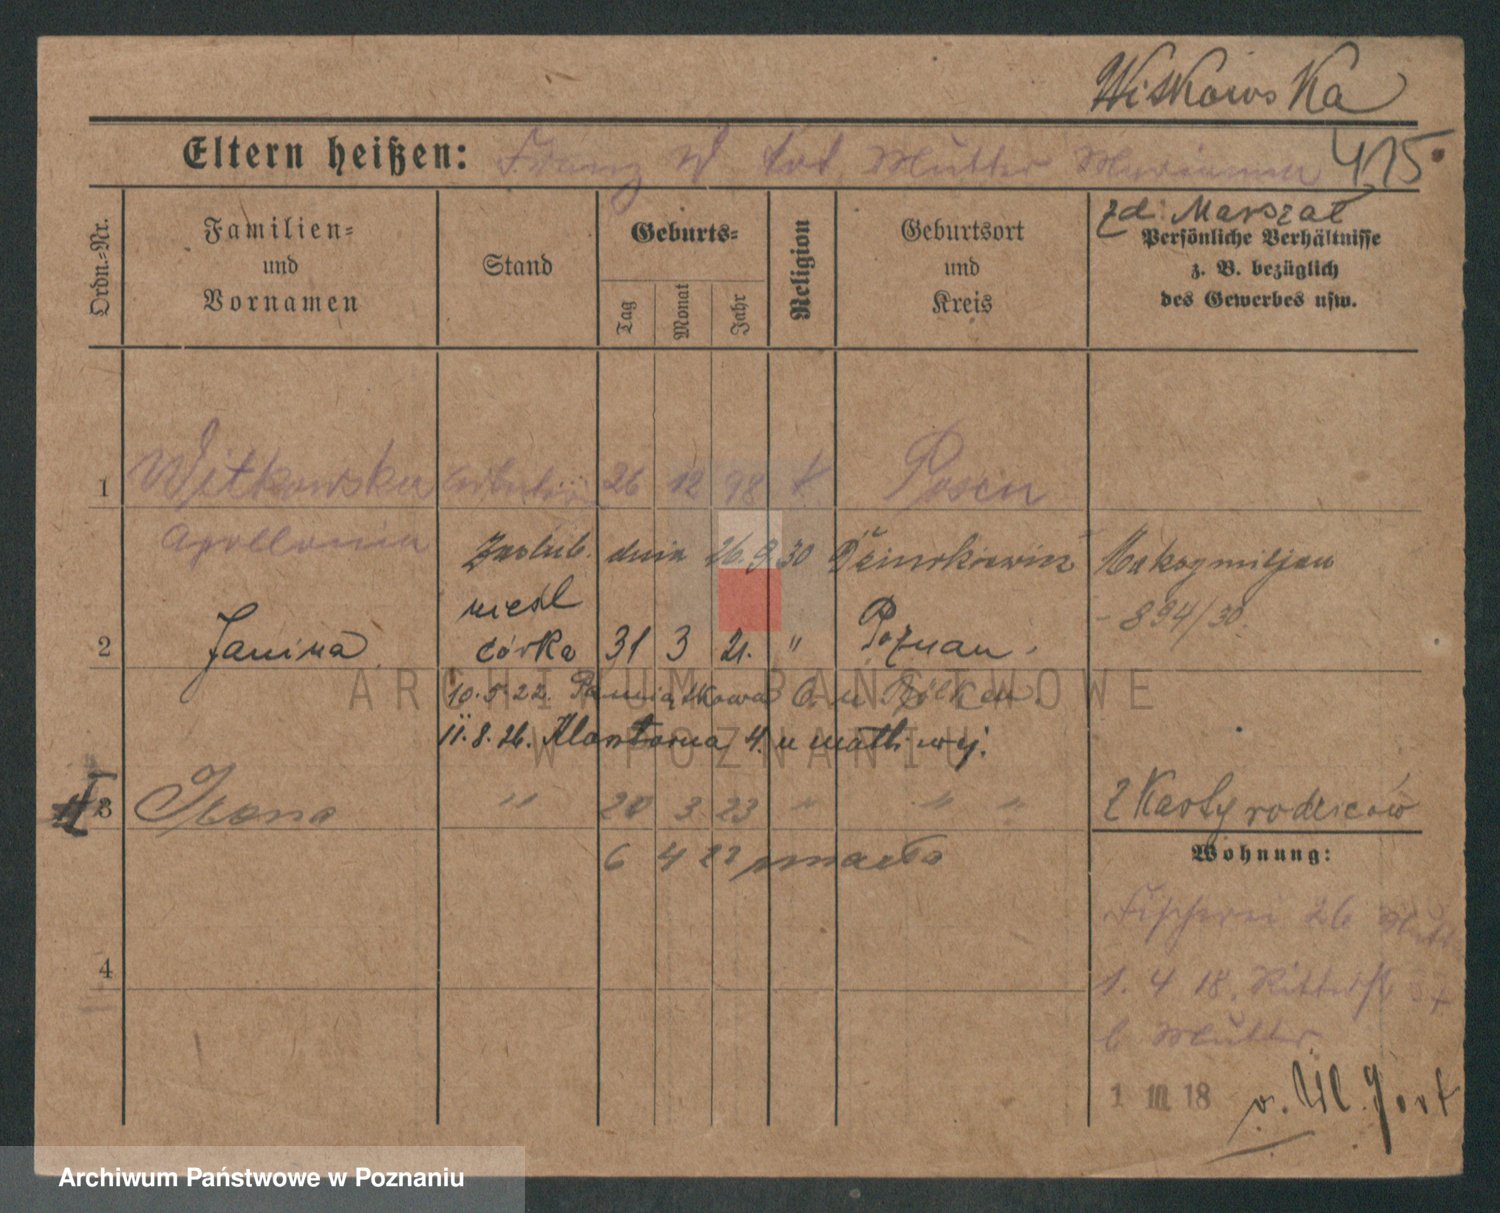 Witkowska
Eltern heißen: Franz W tot Mutter Marianna 415
zd. Marszał
Ordn.-Nr.
Familien-
und
Vornamen
Stand
Geburts-
Tag
Monat
Jahr
Religion
Geburtsort
und
Kreis
Persönliche Verhältnisse
z. B. bezüglich
des Gewerbes usw.
1 Witkowska 26 12 98 k Posen
Apollonia
dnia 26 9 30
niesl
894/30.
2 Janina córka 31 3 21. " Poznan.
10.5.22. Pamiątkowa
11.8.26. Klasztorna 4. u matki wej.
3 Irena " 20 3 23 " " "
Z Karty rodziców
6 4 23 zmarła
Wohnung:
Fischerei 26
4
1. 4 18. Ritterstr 37
b Mutter
1 III 18
ARCHIWUM PAŃSTWOWE
W POZNANIU
Archiwum Państwowe w Poznaniu